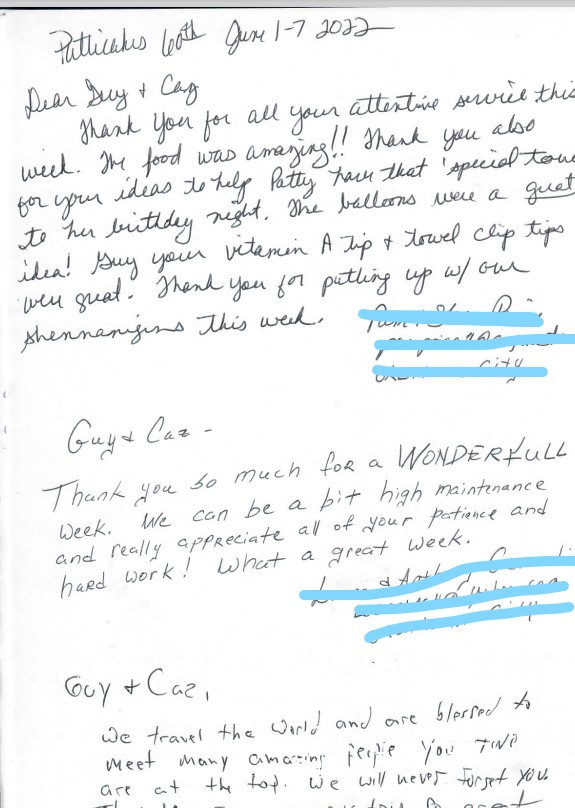 60th June 1-7 2022
Dear Guy & Caz
Thank you for all your attentive service this
week. The food was amazing!! Thank you also
for your ideas to help Patty have that 'special touc
to her birthday night. The balloons were a great
idea! Guy your vitamin A tip & towel clip tips
were great. Thank you for putting up w/ our
shennanigins this week.
City
Guy & Caz -
Thank you so much for a WONDERFULL
week. We can be a bit high maintenance
and really appreciate all of your patience and
hard work! What a great week.
Guy & Caz,
We travel the world and are blessed to
meet many amazing people you two
are at the top. We will never forget you